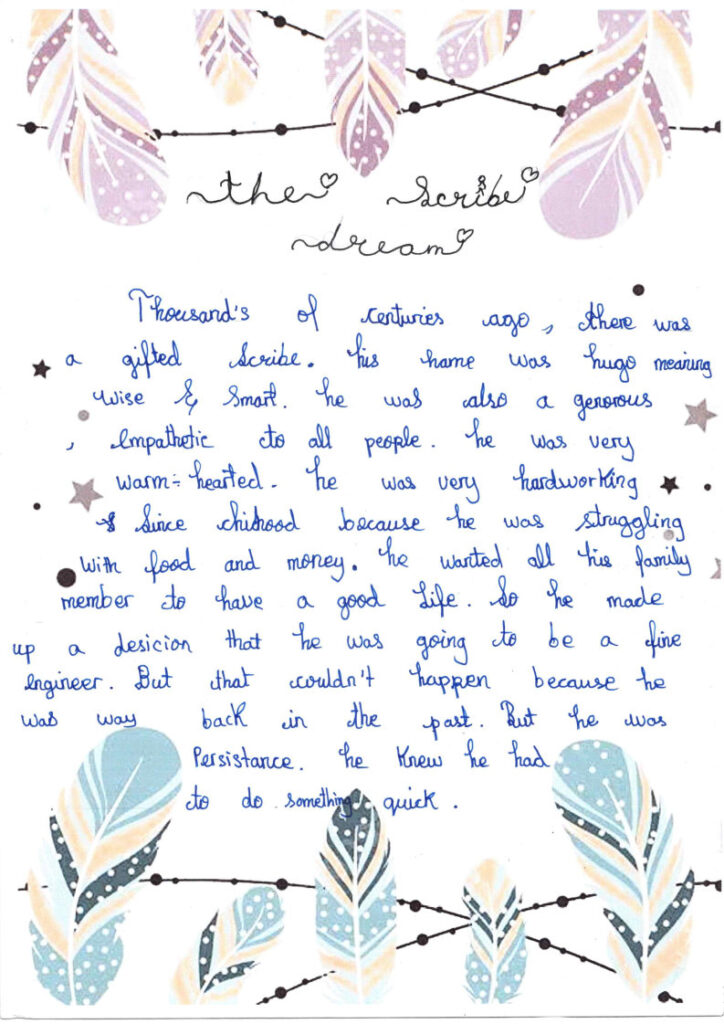 the scribe
dream
Thousand's of centuries ago, there was
a gifted scribe. his name was hugo meaning
wise & smart. he was also a generous
, empathetic to all people. he was very
warm-hearted. he was very hardworking
since chihood because he was struggling
with food and money. he wanted all his family
member to have a good life. So he made
up a desicion that he was going to be a fine
engineer. But that couldn't happen because he
was way back in the past. But he was
Persistance. he knew he had
to do something quick.